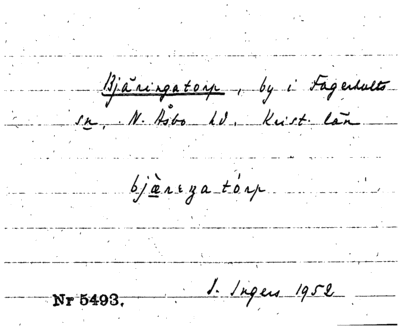 Bjäringatorp, by i Fagerhults
sn, N. Åsbo hd. Krist. län
bjæ̀rɩŋatórp
I. Ingers 1952
Nr 5493.